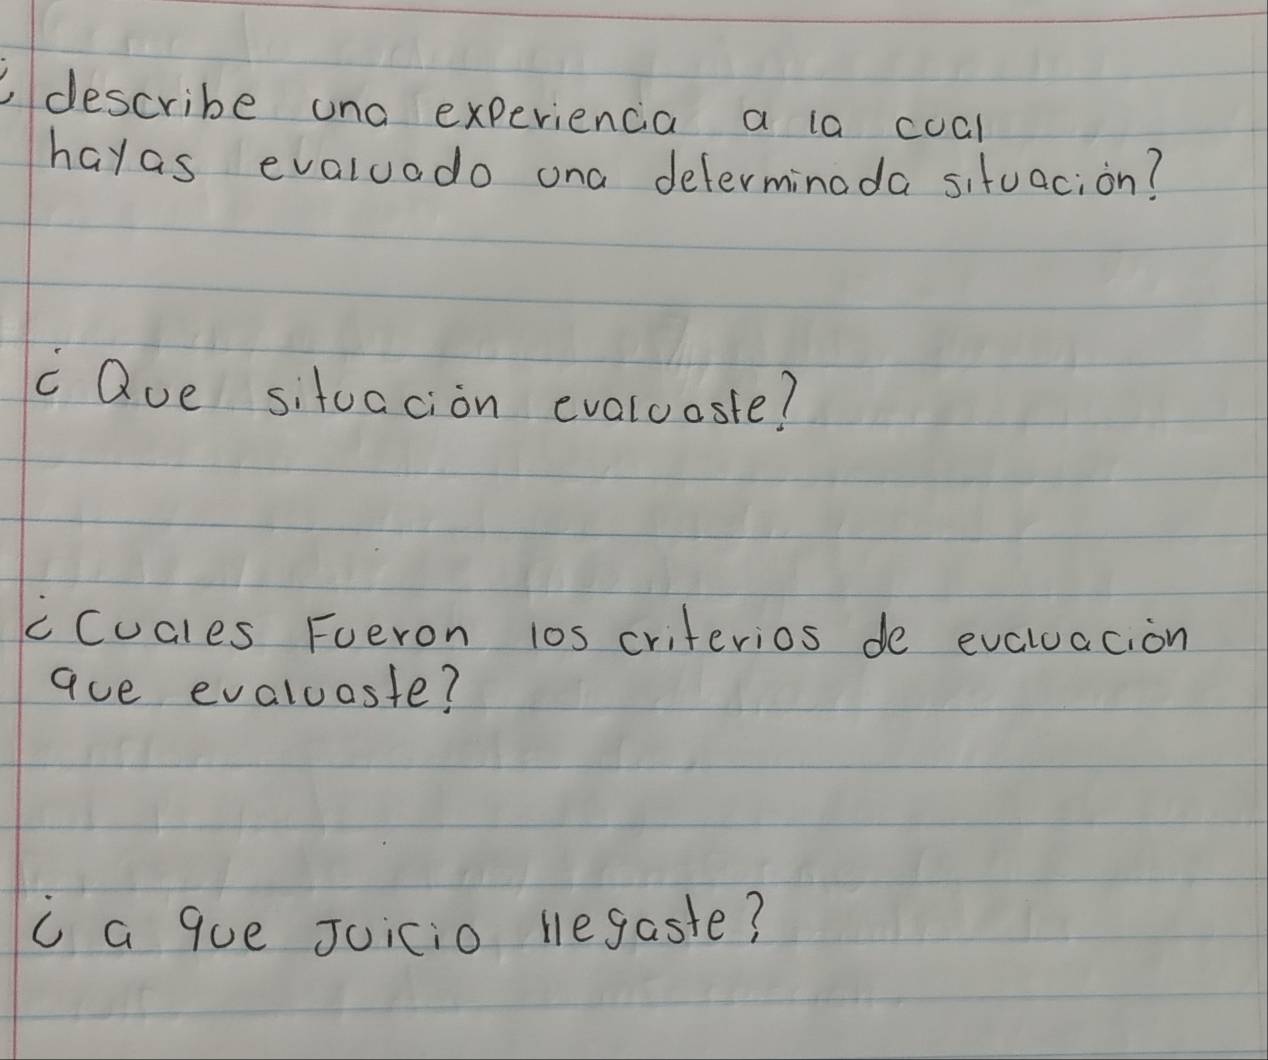 ¿ describe una experiencia a la cual
hayas evaluado una determinada situación?
¿ Que situación evaluaste?
¿ Cuales Fueron los criterios de evaluación
que evaluaste?
¿ a que Juicio llegaste?